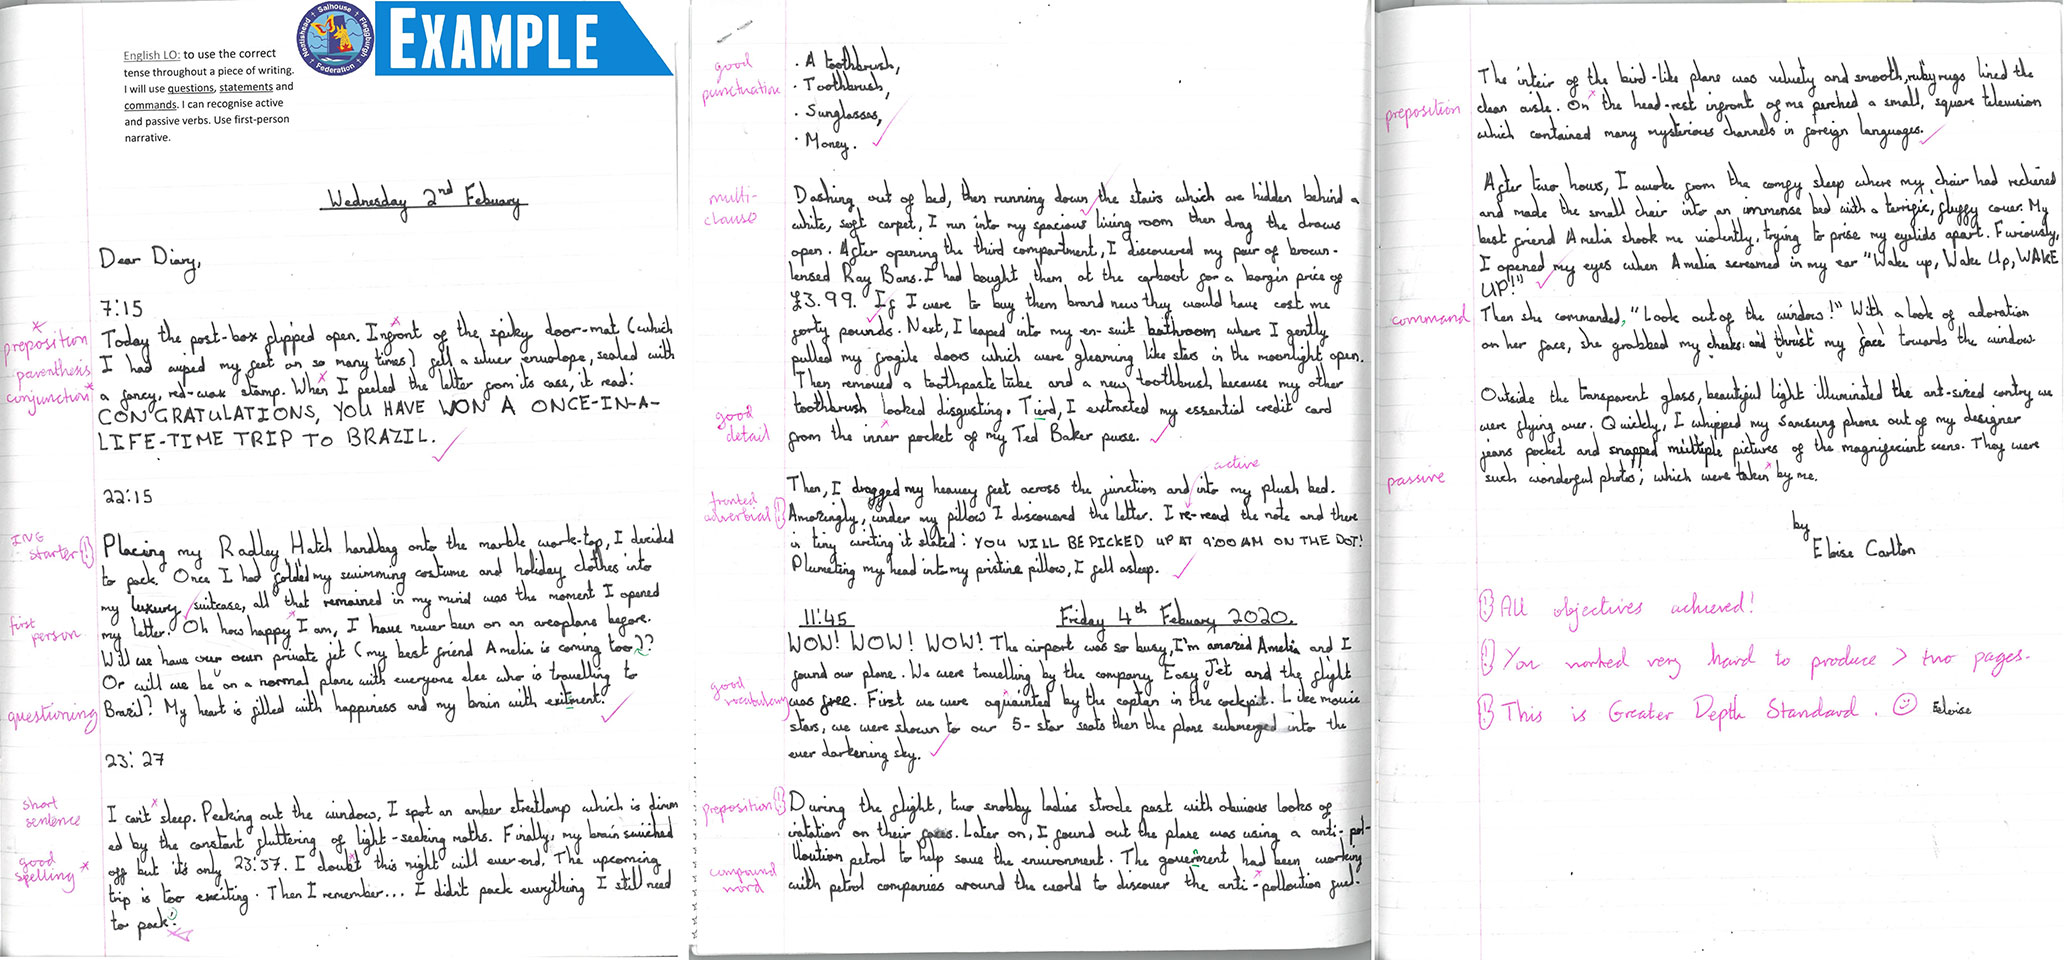 Nenthead Salhouse Fleggburgh Federation
EXAMPLE
English LO: to use the correct
tense throughout a piece of writing.
I will use questions, statements and
commands. I can recognise active
and passive verbs. Use first-person
narrative.
Wednesday 2nd Febuary
Dear Diary,
7:15
preposition
parenthesis
conjunction
Today the post-box flipped open. Infront of the spiky door-mat (which
I had wiped my feet on so many times) fell a silver envelope, sealed with
a fancy, red-wax stamp. When I peeled the letter from its case, it read:
CONGRATULATIONS, YOU HAVE WON A ONCE-IN-A-
LIFE-TIME TRIP TO BRAZIL.
22:15
ING
starter
first
person
questioning
Placing my Radley Hatch handbag onto the marble work-top, I decided
to pack. Once I had folded my swimming costume and holiday clothes into
my luxury suitcase, all that remained in my mind was the moment I opened
my letter. Oh how happy I am, I have never been on an areoplane before.
Will we have our own private jet (my best friend Amelia is coming too)?
Or will we be on a normal plane with everyone else who is travelling to
Brazil? My heart is filled with happiness and my brain with exitment.
23:27
short
sentence
good
spelling
I can't sleep. Peeking out the window, I spot an amber streetlamp which is dimm
ed by the constant fluttering of light-seeking moths. Finally, my brain swiched
off but it's only 23:37. I doubt this night will ever end. The upcoming
trip is too exciting. Then I remember... I didn't pack everything I still need
to pack:
good
punctuation
· A toothbrush,
· Toothbrush,
· Sunglasses,
· Money.
multi-
clause
good
detail
Dashing out of bed, then running down the stairs which are hidden behind a
white, soft carpet, I run into my spacious living room then drag the draws
open. After opening the third compartment, I discovered my pair of brown-
lensed Ray Bans. I had bought them at the carboot for a bargin price of
£3.99. If I were to buy them brand new they would have cost me
forty pounds. Next, I leaped into my en-suit bathroom where I gently
pulled my fragile doors which were gleaming like stars in the moonlight open.
Then removed a toothpaste tube and a new toothbrush because my other
toothbrush looked disgusting. Tierd, I extracted my essential credit card
from the inner pocket of my Ted Baker purse.
active
fronted
adverbial
Then, I dragged my heavey feet across the junction and into my plush bed.
Amazingly, under my pillow I discovered the letter. I re-read the note and there
in tiny writing it stated: YOU WILL BE PICKED UP AT 9:00 AM ON THE DOT!
Plumeting my head into my pristine pillow, I fell asleep.
11:45 Friday 4th Febuary 2020.
good
vocabulary
WOW! WOW! WOW! The airport was so busy, I'm amazed Amelia and I
found our plane. We were travelling by the company Easy Jet and the flight
was free. First we were aquainted by the captan in the cockpit. Like movie
stars, we were shown to our 5-star seats then the plane submerged into the
ever darkening sky.
preposition
compound
word
During the flight, two snobby ladies strode past with obvious looks of
iratation on their faces. Later on, I found out the plane was using a anti-pol-
loution petrol to help save the enviroment. The goverment had been working
with petrol companies around the world to discover the anti-polloution fuel.
preposition
The inteir of the bird-like plane was velvety and smooth, ruby rugs lined the
clean aisle. On the head-rest infront of me perched a small, square television
which contained many mysterious channels in foreign languages.
After two hours, I awoke from the comfy sleep where my chair had reclined
and made the small chair into an immense bed with a terrific, fluffy cover. My
best friend Amelia shook me violently, trying to prise my eyelids apart. Furiously,
I opened my eyes when Amelia screamed in my ear "Wake up, Wake Up, WAKE
UP!"
command
Then she commanded, "Look out of the window!" With a look of adoration
on her face, she grabbed my cheeks and thrust my face towards the window.
passive
Outside the transparent glass, beautiful light illuminated the ant-sized contry we
were flying over. Quickly, I whipped my Samsung phone out of my designer
jeans pocket and snapped multiple pictures of the magnificient scene. They were
such wonderful photos; which were taken by me.
by
Eloise Carlton
All objectives achieved!
You worked very hard to produce > two pages.
This is Greater Depth Standard. Eeloise